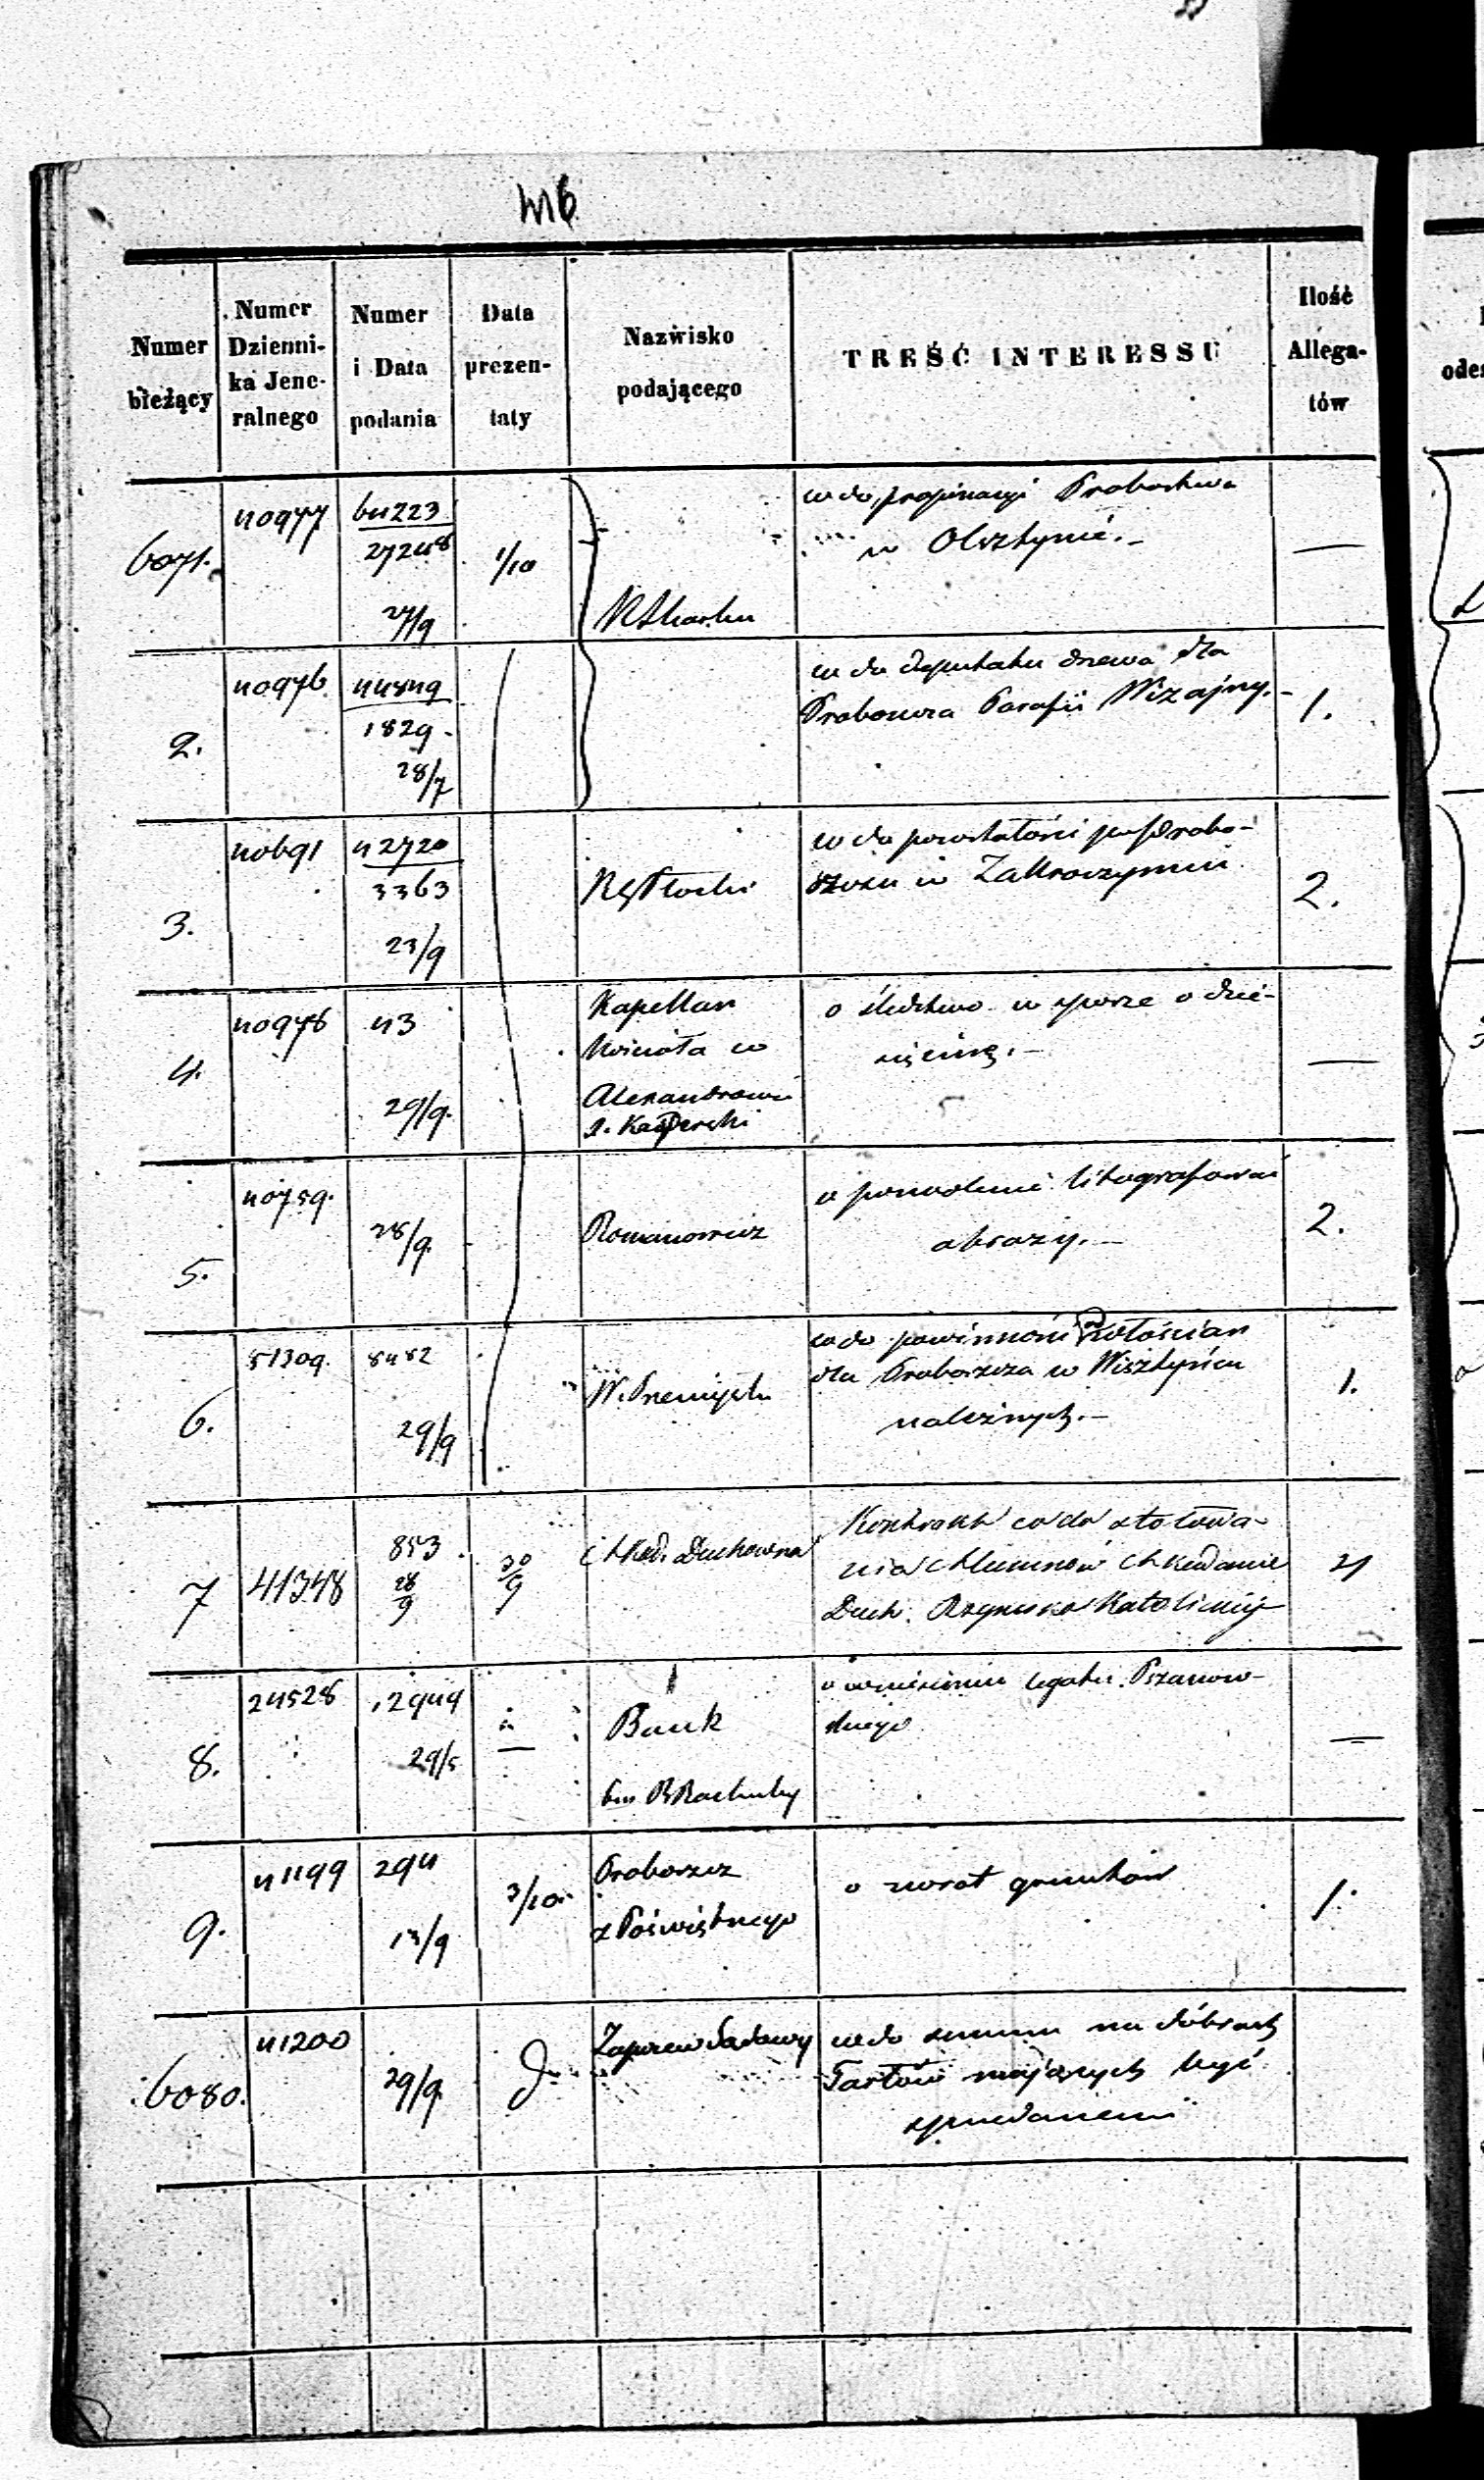 416
Numer bieżący
Numer Dzienni-
ka Jene-
ralnego
Numer
i Data
podania
Data
prezen-
taty
Nazwisko
podającego
TREŚĆ INTERESSU
Ilość
Allega-
tów
6071. 40977 64223
27248
27/9 1/10
co do propinacyi Probostwa
w Olsztynie. —
2. 40976
1829
28/7
co do deputatu drzewa dla
Proboszcza Parafii Wizajny. — 1.
3. 40691 42720
3363
23/9
co do pozostałości po Probo-
szczu w Zakroczymiu 2.
4. 40976 43
29/9.
Kapellan
Kościoła w
Alexandrowie
o śledztwo w sporze o dzie-
sięcinę. —
5. 40759.
28/9.
Romanowicz
o pozwolenie litografowania
obrazy. — 2.
6. 51309. 8482
29/9
co do powinności od Włościan
dla Proboszcza w Wisztyńcu
należnych. — 1.
7 41348 853
28/9 30/9
Akad. Duchowna
Kontrakt co do stołowa-
nia Alumnów Akademii
Duch. Rzymsko Katolickiej
8. 24528 12949
29/5
Bank
o wniesieniu legatu
9. 41199 294
13/9 3/10
Proboszcz
z Poświętnego
o zwrot gruntów 1.
6080. 41200
29/9. d
co do summ na dobrach
Tarłów mających być
sprzedanemi